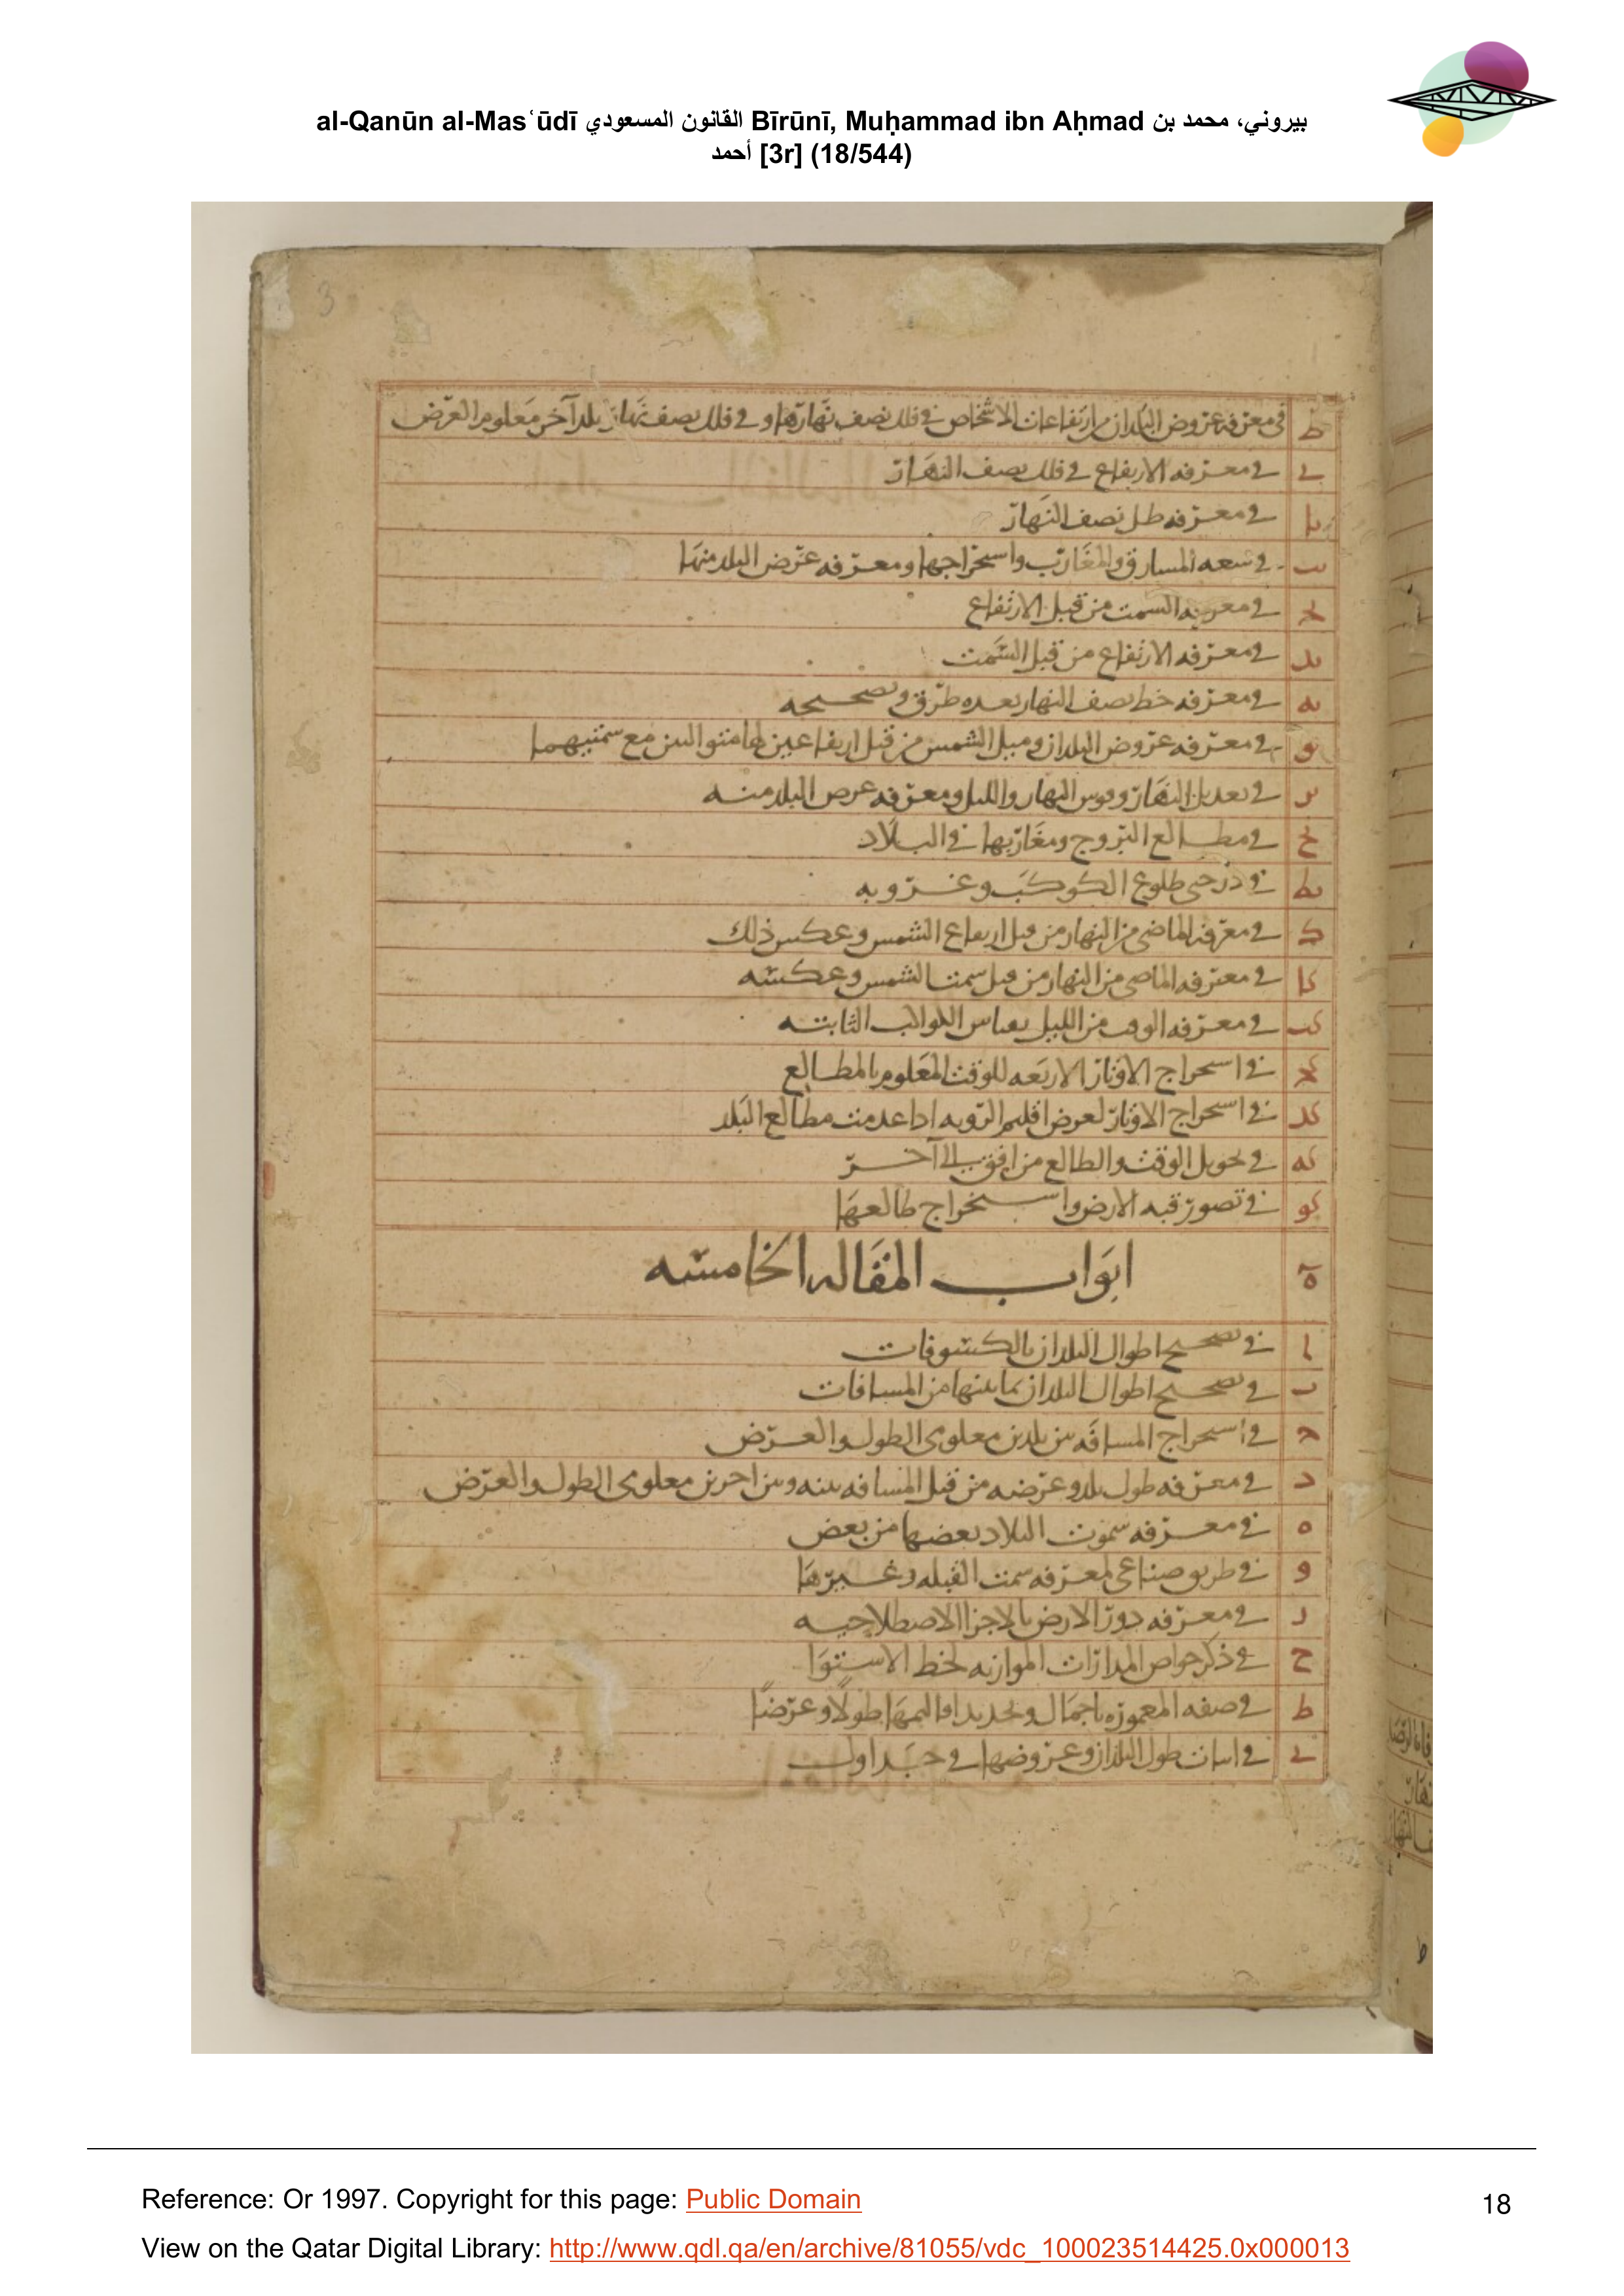 al-Qanūn al-Masʿūdī القانون المسعودي Bīrūnī, Muḥammad ibn Aḥmad بيروني، محمد بن
أحمد [3r] (18/544)
3
ط في معرفه عروض البلدان من ارتفاعات الاشخاص في فلك نصف نهارها و في فلك نصف نهار بلد آخر معلوم العرض
ى في معرفه الارتفاع في فلك نصف النهار
يا في معرفه ظل نصف النهار
يب في سعه المشارق والمغارب واستخراجها ومعرفه عرض البلد منها
يج في معرفه السمت من قبل الارتفاع
يد في معرفه الارتفاع من قبل السمت
يه في معرفه خط نصف النهار بعده طرق وتصحيحه
يو في معرفه عروض البلدان وميل الشمس من قبل ارتفاعين لها مع سمتيهما
يز في تعديل النهار وقوس النهار والليل ومعرفه عرض البلد منه
يح في مطالع البروج ومغاربها في البلاد
يط في درجتى طلوع الكوكب وغروبه
ك في معرفه الماضى من النهار من قبل ارتفاع الشمس وعكس ذلك
كا في معرفه الماضى من النهار من قبل سمت الشمس وعكسه
كب في معرفه الوقت من الليل بقياس الكواكب الثابته
كج في استخراج الاوتاد الاربعه للوقت المعلوم بالمطالع
كد في استخراج الاوتاد لعرض اقليم الرويه اذا عدمت مطالع البلد
كه في تحويل الوقت والطالع من افق الى آخر
كو في تصور قبه الارض واستخراج طالعها
ه ابواب المقاله الخامسه
ا في تصحيح اطوال البلدان بالكسوفات
ب في تصحيح اطوال البلدان بما بينها من المسافات
ج في استخراج المسافه بين بلدين معلومى الطول والعرض
د في معرفه طول بلد وعرضه من قبل المسافه بينه وبين اخرين معلومى الطول والعرض
ه في معرفه سموت البلاد بعضها من بعض
و في طريق صناعى لمعرفه سمت القبله وغيرها
ز في معرفه دور الارض بالاجزا الاصطلاحيه
ح في ذكر خواص المدارات الموازيه لخط الاستوا
ط في صفه المعموره باجمال وتحديد اقاليمها طولا وعرضا
ى في اثبات طول البلدان وعروضها في جداول
Reference: Or 1997. Copyright for this page: Public Domain
18
View on the Qatar Digital Library: http://www.qdl.qa/en/archive/81055/vdc_100023514425.0x000013